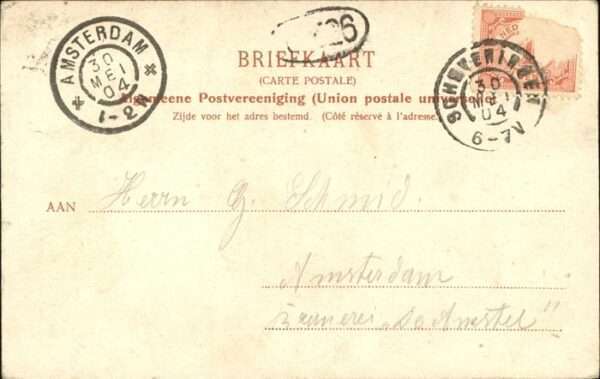 AMSTERDAM
30
MEI
04
1-2N
26
BRIEFKAART
(CARTE POSTALE)
Algemeene Postvereeniging (Union postale universelle)
Zijde voor het adres bestemd. (Côté réservé à l'adresse.)
SCHEVENINGEN
30
MEI
04
6-7V
NED
AAN Herrn G. Schmid.
Amsterdam
"De Amstel"